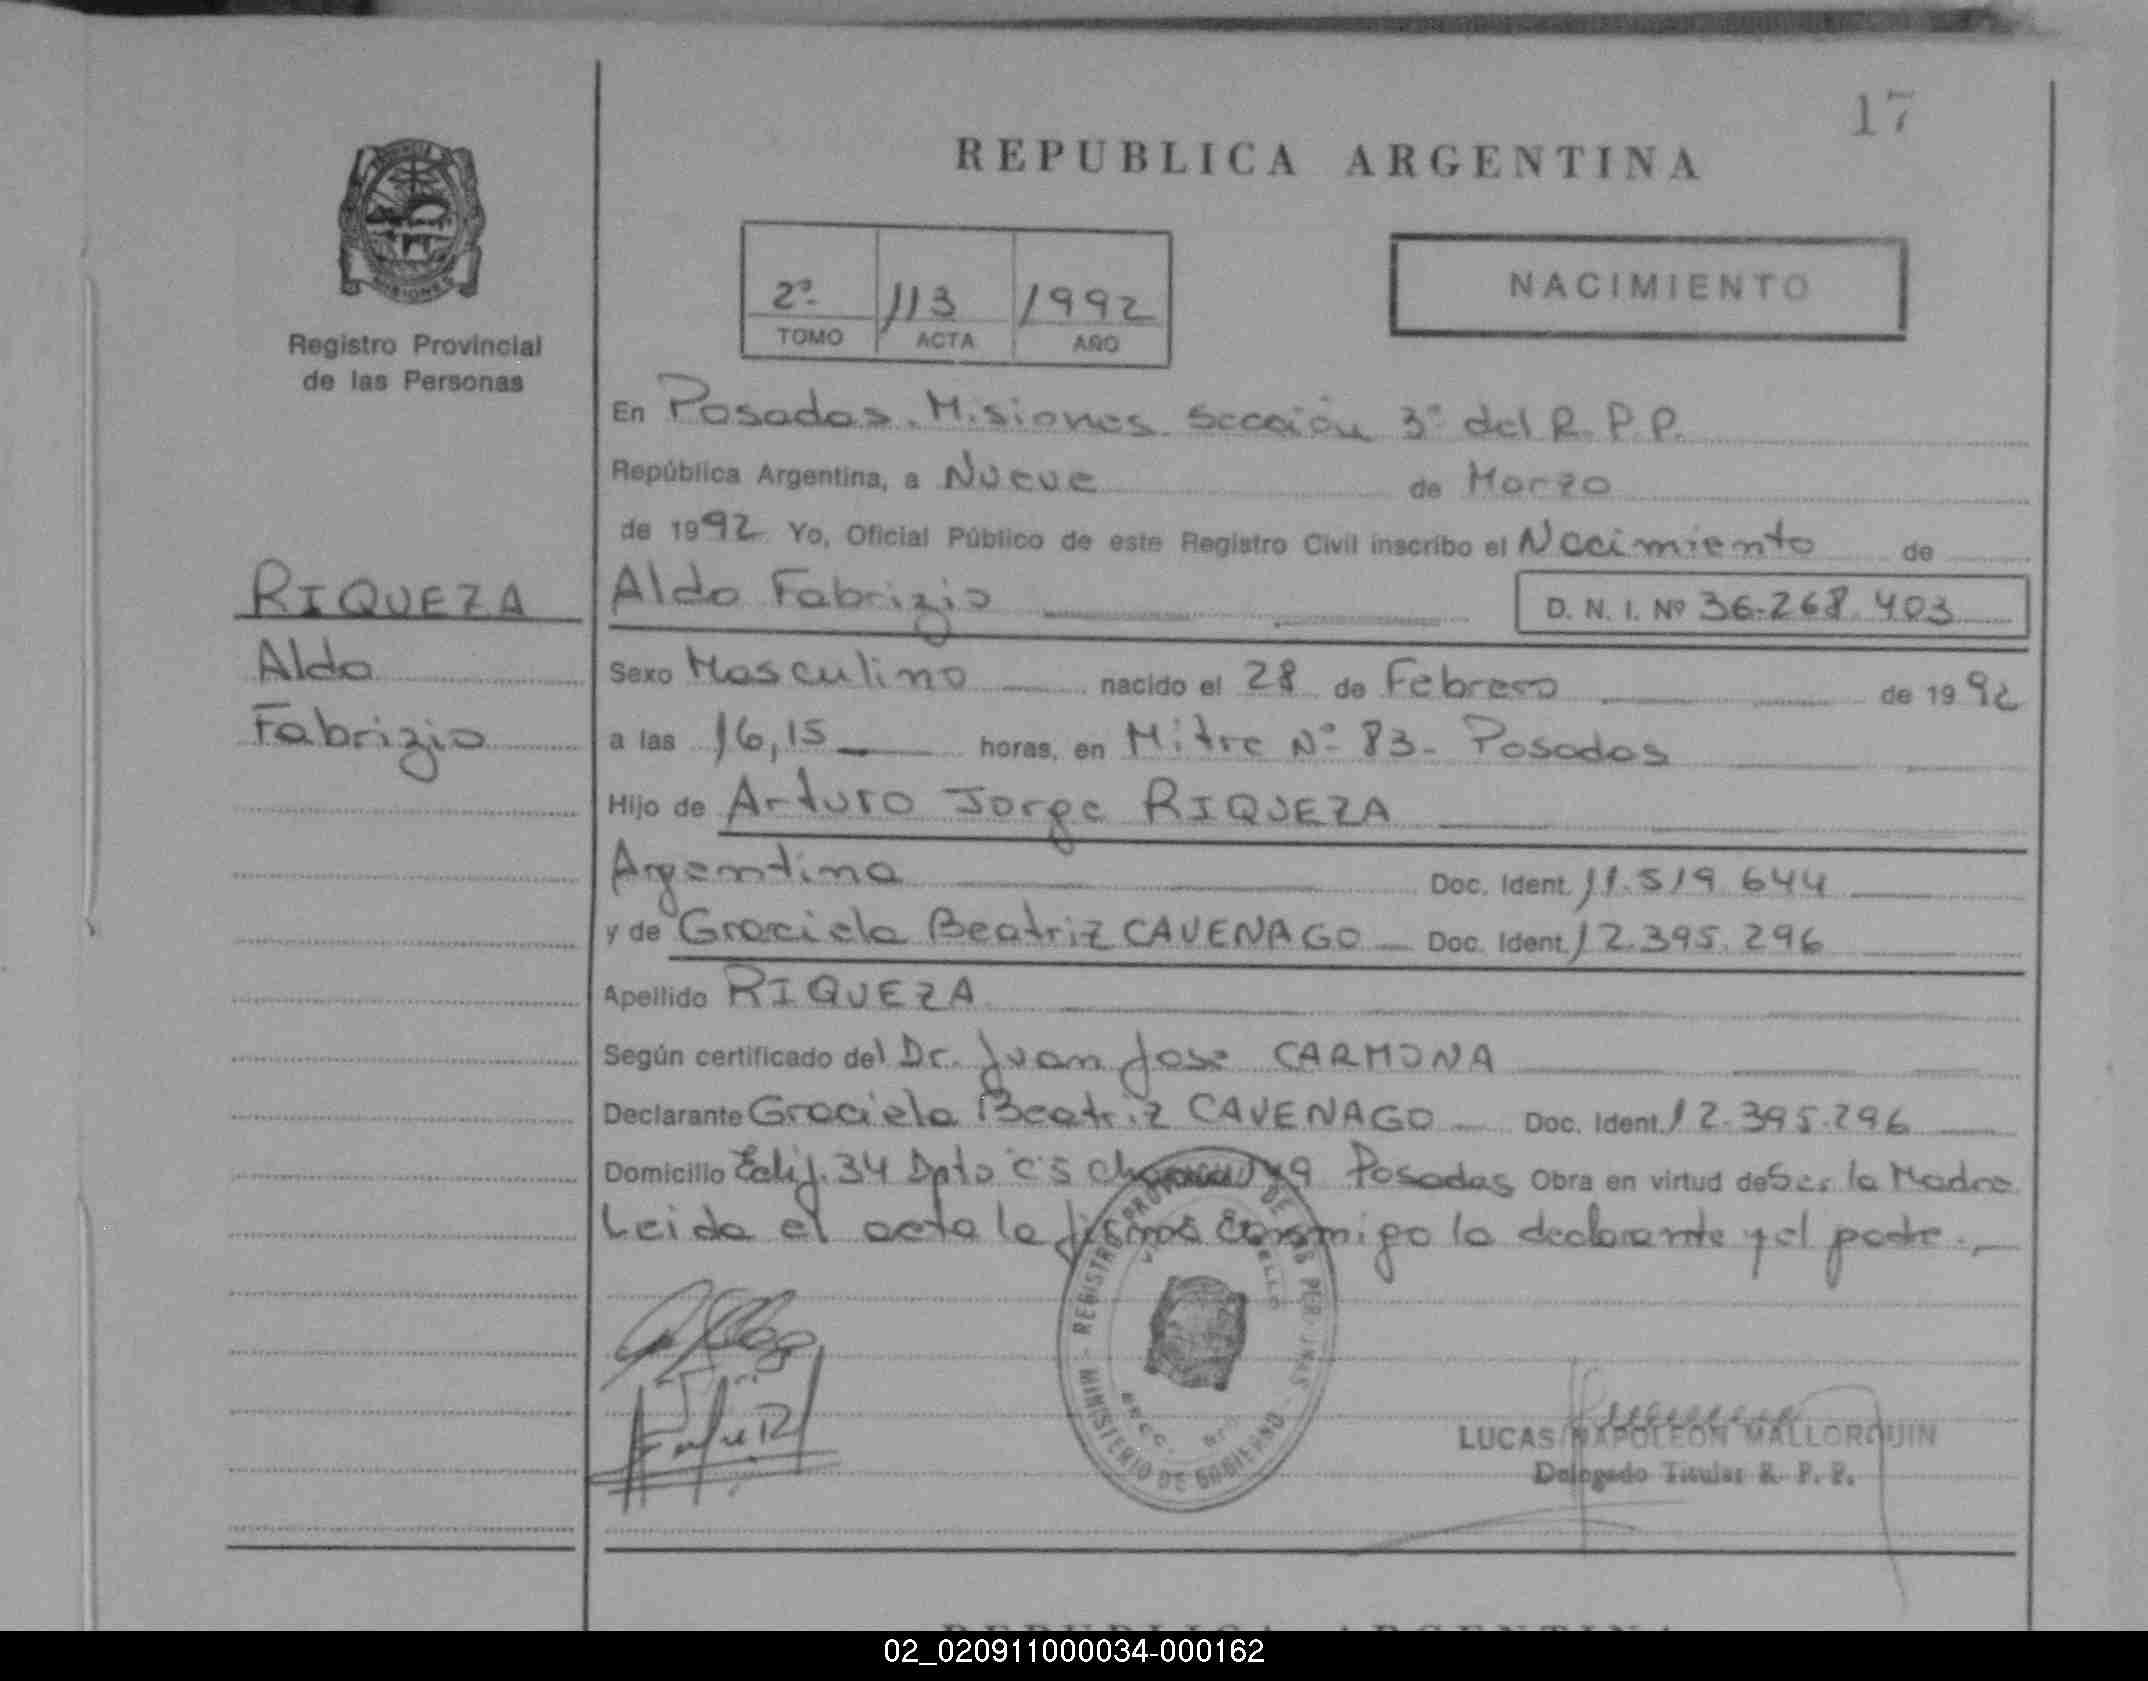 17
REPUBLICA ARGENTINA
MISIONES
Registro Provincial
de las Personas
2º 113 1992
TOMO ACTA AÑO
NACIMIENTO
En Posadas. Misiones. Sección 3º del R.P.P.
República Argentina, a Nueve de Marzo
de 1992 Yo, Oficial Público de este Registro Civil inscribo el Nacimiento de
RIQUEZA
Aldo
Fabrizio
Aldo Fabrizio D. N. I. Nº 36.268.403
Sexo Masculino nacido el 28 de Febrero de 1992
a las 16,15 horas, en Mitre Nº 83 - Posadas
Hijo de Arturo Jorge RIQUEZA
Argentina Doc. Ident. 11.519.644
y de Graciela Beatriz CAVENAGO Doc. Ident. 12.395.296
Apellido RIQUEZA
Según certificado del Dr. Juan Jose CARMONA
Declarante Graciela Beatriz CAVENAGO Doc. Ident. 12.395.296
Domicilio Edif. 34 Dpto "C" 5 Posadas Obra en virtud de Ser la Madre
Leida el acta la firma conmigo la declarante y el padre.-
REGISTRO PROVINCIAL DE LAS PERSONAS - MINISTERIO DE GOBIERNO -
LUCAS NAPOLEON MALLORQUIN
Delegado Titular R. P. P.
REPUBLICA ARGENTINA
02_020911000034-000162